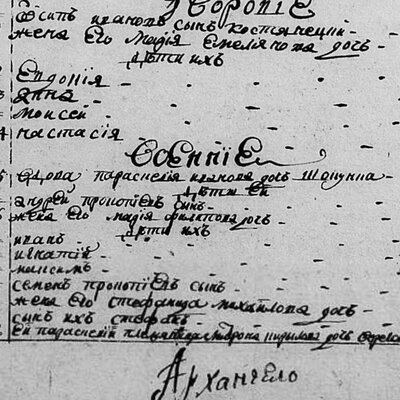 Осипъ ивановъ сынъ костянецкии
жена Его Марія Емелянова дочь
Дѣти ихъ
Евдокія
Анна
Моисей
настасія
Вдова параскевія иванова дочь
Дѣти Ей
андрей прокопіевъ сынъ
жена его марія филипова дочь
Дѣти ихъ
иванъ
игнатій
максимъ
семенъ прокопіевъ сынъ
жена Его стефанида михайлова дочь
сынъ ихъ стефанъ
Ей параскевіи дочь
Архангело